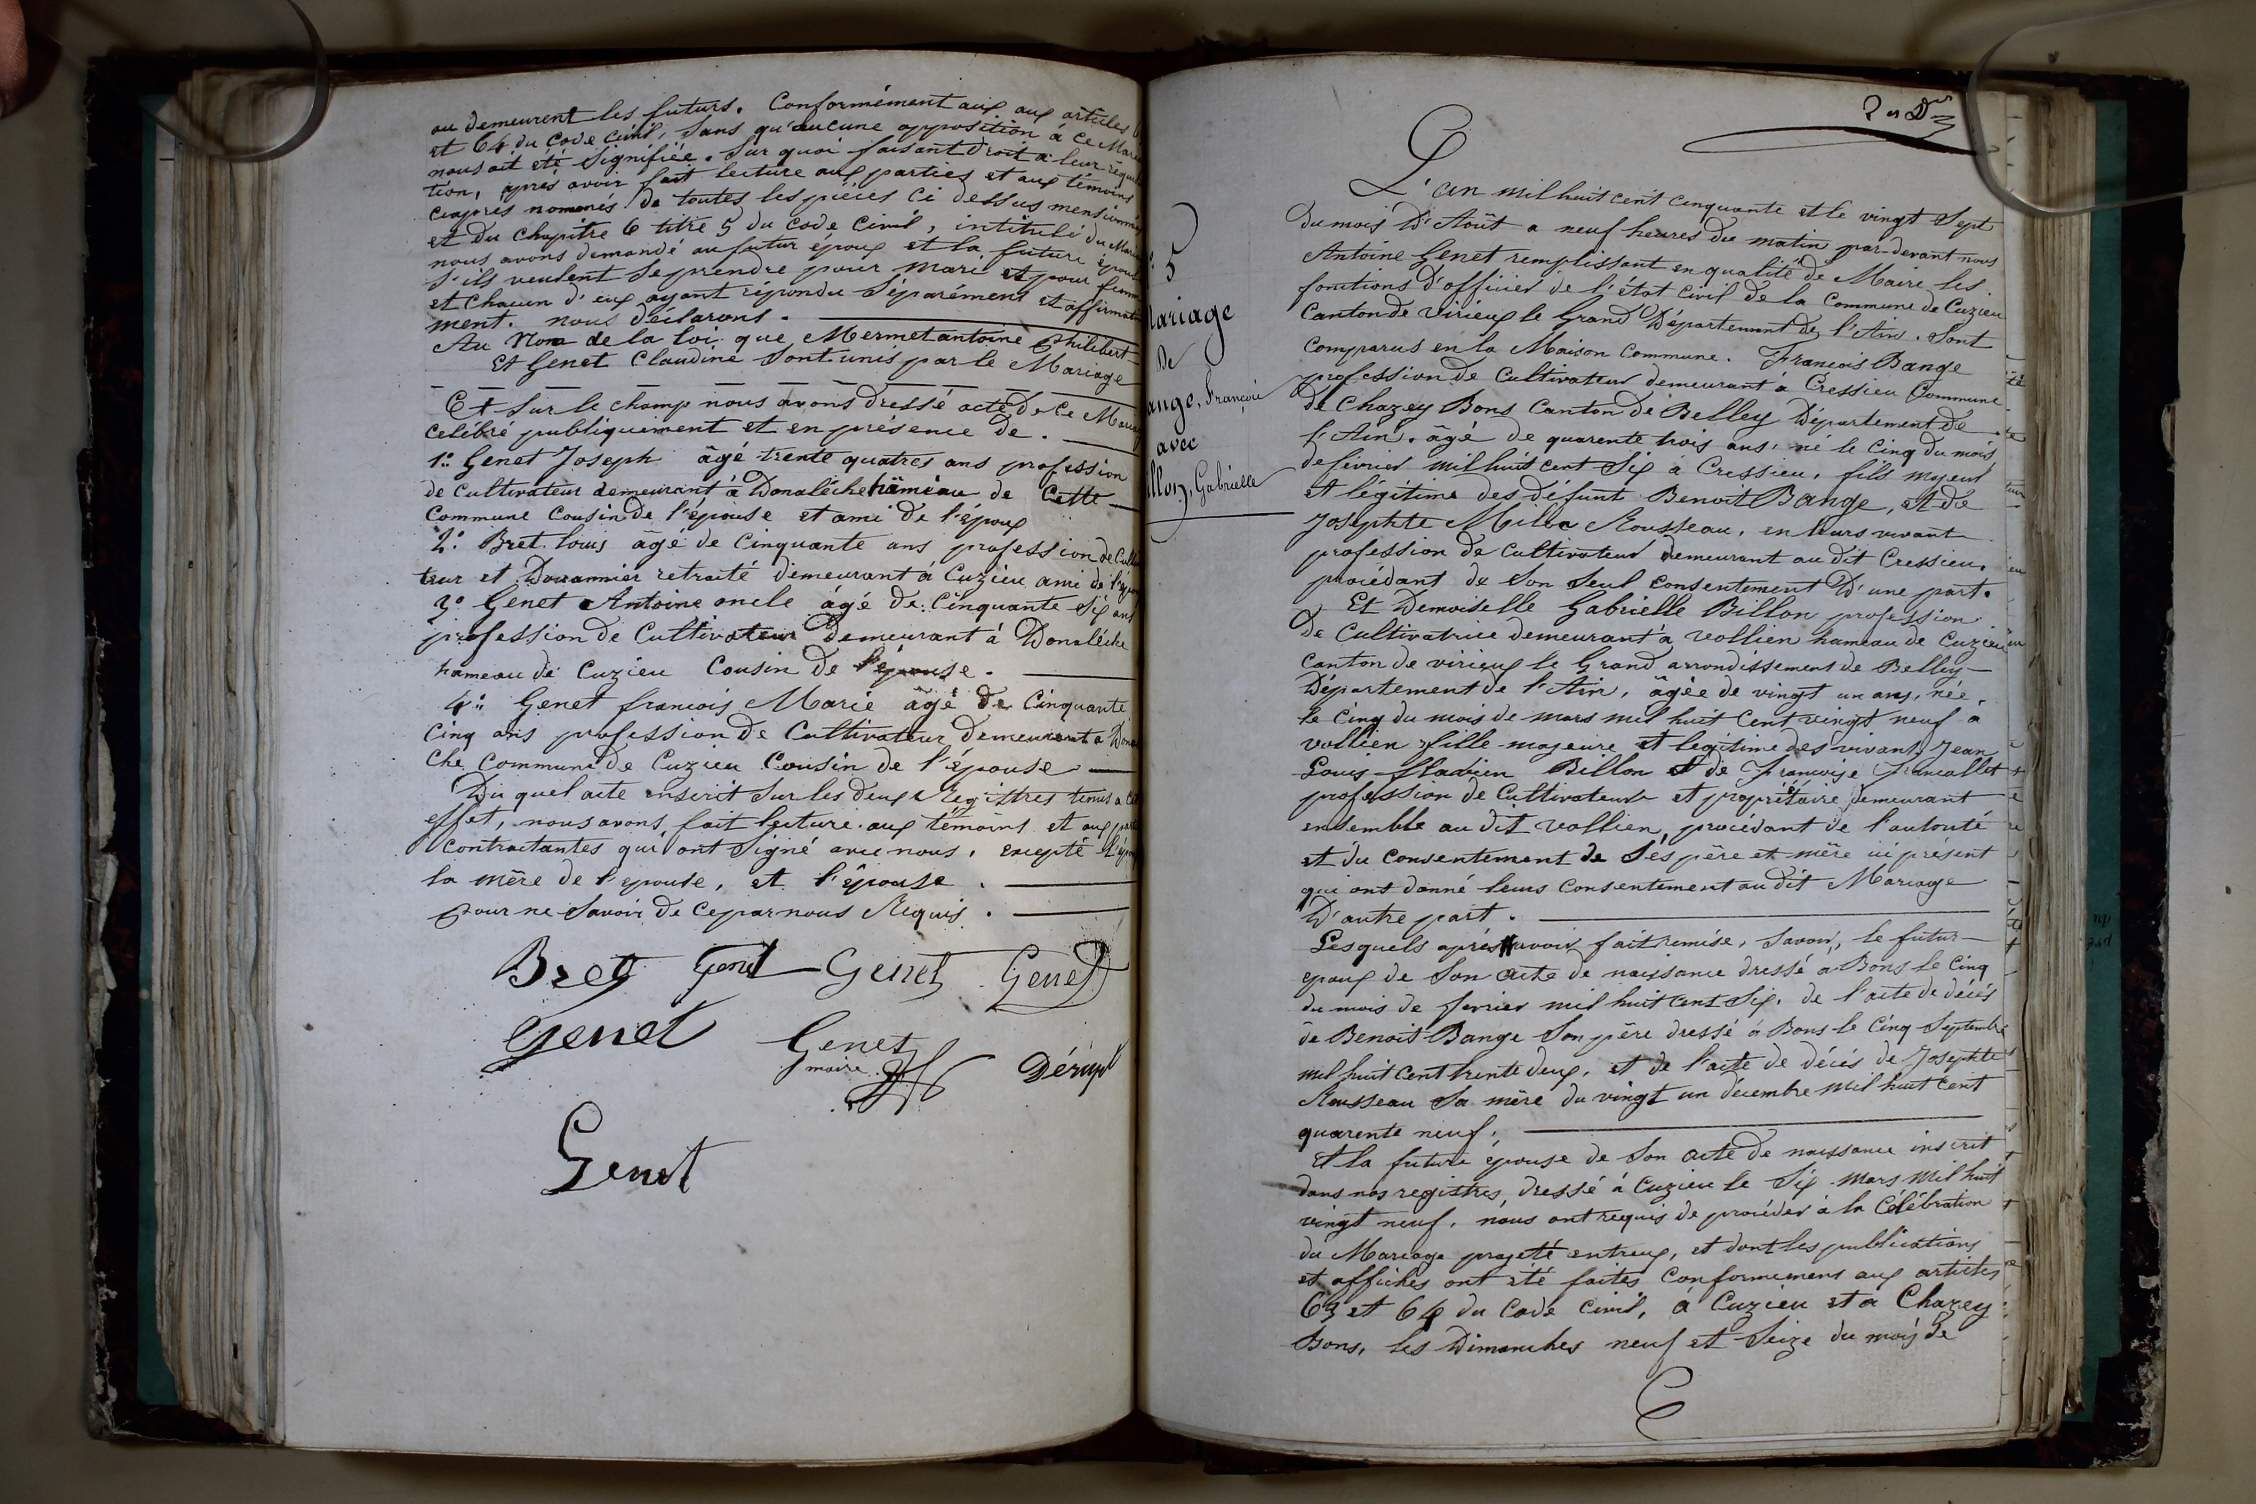 ou demeurent les futurs. Conformément aux aux articles
et 64 du Code Civil, sans qu'aucune opposition à ce Mari
nous ait été signifiée. Sur quoi faisant droit à leur réqui
tion, après avoir fait lecture aux parties et aux témoins
ciaprès nommés de toutes les pièces ci dessus mensionnées
et du chapitre 6 titre 5 du Code Civil, intitulé du Maria
nous avons demandé au futur époux et la future épouse
s'ils veulent se prendre pour mari et pour femme
et chacun d'eux ayant répondu séparément et affirmative
ment. nous déclarons.
Au Nom de la loi que Mermet antoine Philibert
Et Genet Claudine sont unis par le Mariage
Et sur le champ nous avons dressé acte de ce Mariage
célébré publiquement et en présence de.
1° Genet Joseph âgé trente quatres ans profession
de cultivateur demeurant à Donaléche hameau de Cette
Commune Cousin de l'épouse et ami de l'époux
2° Bret louis âgé de Cinquante ans profession de Culti
teur et Douannier retraité demeurant à Cuzieu ami de l'époux
3° Genet Antoine oncle âgé de Cinquante six ans
profession de Cultivateur demeurant à Donaléche
hameau de Cuzieu Cousin de l'épouse.
4° Genet francois Marie âgé de Cinquante
Cinq ans profession de Cultivateur demeurant a Dona
che Commune de Cuzieu Cousin de l'épouse
Du quel acte inscrit sur les deux Registres tenus a cet
effet, nous avons fait lecture aux témoins et aux parties
Contractantes qui ont signé avec nous, excepté l'époux
la mère de l'épouse, et l'épouse.
pour ne savoir de ce par nous Requis.
Bret Genet Genet Genet
Genet Genet
maire
Genet
5
Mariage
De
Bange, François
avec
Billon, Gabrielle
L'an mil huit cent cinquante et le vingt Sept
du mois D'Août a neuf heures du matin par-devant nous
Antoine Genet remplissant en qualité de Maire les
fonctions d'officier de l'état Civil de la Commune de Cuzieu
Canton de Virieux le Grand Département de l'Ain. Sont
Comparus en la Maison Commune. François Bange
profession de Cultivateur demeurant à Cressieu Commune
de Chazey Bons Canton de Belley Département de
l'Ain. âgé de quarente trois ans, né le Cinq du mois
de fevrier mil huit cent Six à Cressieu, fils majeur
et légitime des défunt Benoit Bange, et de
Josephte Rousseau, en leurs vivant
profession de Cultivateur demeurant au dit Cressieu.
procédant de Son Seul consentement D'une part.
Et Demoiselle Gabrielle Billon profession
de Cultivatrice demeurant a vollien hameau de Cuzieu
Canton de virieux le Grand arrondissement de Belley
Département de l'Ain, âgée de vingt un ans, née.
le Cinq du mois de mars mil huit Cent vingt neuf a
vollien fille majeure et legitime des vivant Jean
Louis Billon et de Françoise Francallet
profession de Cultivateur et propriétaire demeurant
ensemble au dit vollien, procédant de l'autorité
et du Consentement de Sés père et mère ici présent
qui ont donné leurs Consentement au dit Mariage
D'autre part.
Lesquels après avoir fait remise, Savoir, le futur
epoux de Son acte de naissance dressé a Bons le Cinq
du mois de fevrier mil huit cent Six, de l'acte de décés
de Benoit Bange Son père dressé à Bons le Cinq Septembre
mil huit Cent trente deux, et de l'acte de décés de Josephte
Rousseau sa mère du vingt un décembre mil huit Cent
quarente neuf.
Et la future épouse de Son acte de naissance inscrit
dans nos registres, dressé à Cuzieu le Six mars mil huit
vingt neuf, nous ont requis de procéder à la Célébration
du Mariage projeté entreux, et dont les publications
et affiches ont été faites Conformement aux articles
63 et 64 du Code Civil, à Cuzieu et a Chazey
Bons, les Dimanches neuf et Seize du mois de